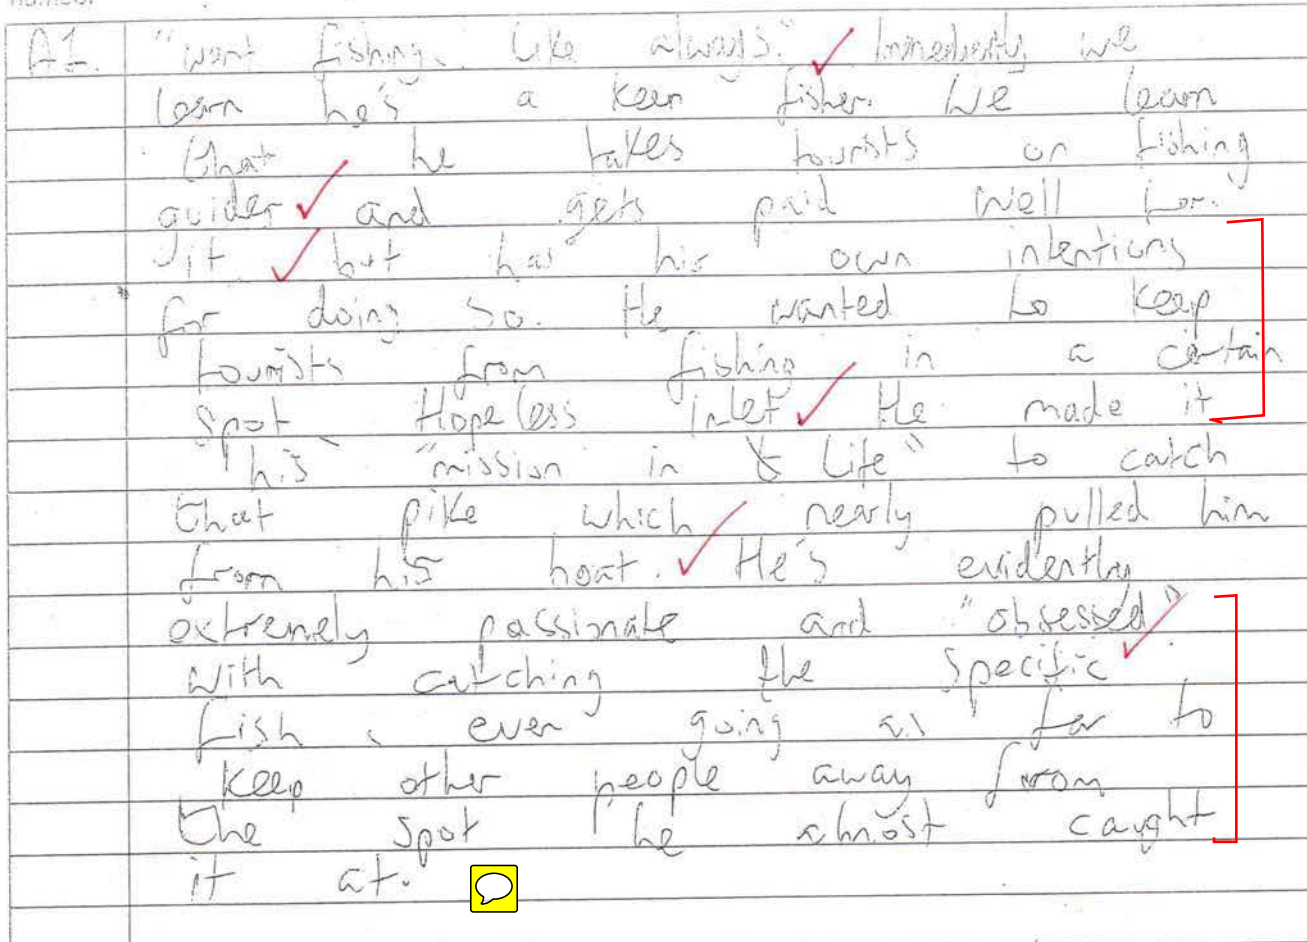 A1. "went fishing, like always." Immediently we
learn he's a keen fisher. We learn
that he takes tourists on fishing
guides and gets paid well for
it, but has his own intentions
for doing so. He wanted to keep
tourists from fishing in a certain
spot Hopeless Inlet. He made it
his "mission in life" to catch
that pike which nearly pulled him
from his boat. He's evidently
extremely passionate and "obsessed"
with catching the specific
fish, even going as far to
keep other people away from
the spot he almost caught
it at.